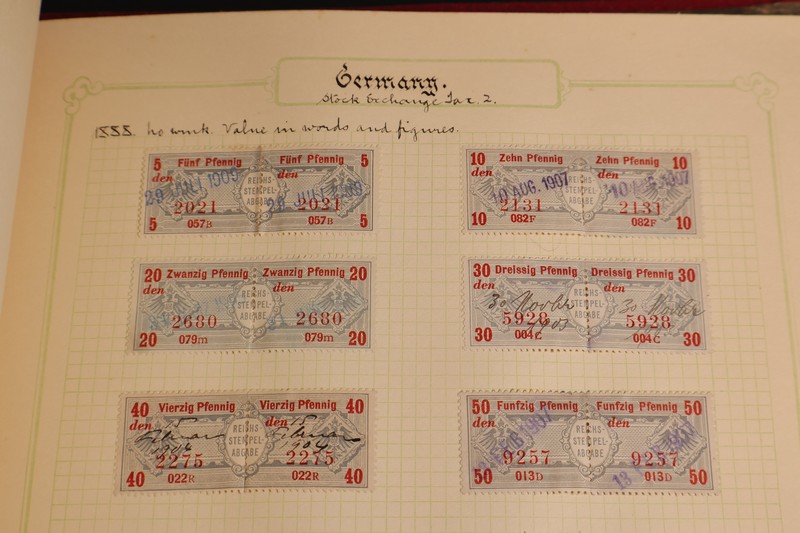 Germany.
Stock Exchange Tax. 2.
1888. no wmk. Value in words and figures.
5 Fünf Pfennig Fünf Pfennig 5
den den
29 JULI 1909 29 JULI 1909
REICHS STEMPEL- ABGABE
2021 2021
5 057B 057B 5
10 Zehn Pfennig Zehn Pfennig 10
den den
10 AUG. 1907 10 AUG. 1907
REICHS STEMPEL- ABGABE
2131 2131
10 082F 082F 10
20 Zwanzig Pfennig Zwanzig Pfennig 20
den den
REICHS STEMPEL- ABGABE
2680 2680
20 079m 079m 20
30 Dreissig Pfennig Dreissig Pfennig 30
den den
30 30
REICHS STEMPEL- ABGABE
5928 5928
30 004C 004C 30
40 Vierzig Pfennig Vierzig Pfennig 40
den 15 den 15
Februar Februar
1904 1904
REICHS STEMPEL- ABGABE
2275 2275
40 022R 022R 40
50 Funfzig Pfennig Funfzig Pfennig 50
den den
1907
REICHS STEMPEL- ABGABE
9257 9257
50 013D 013D 50